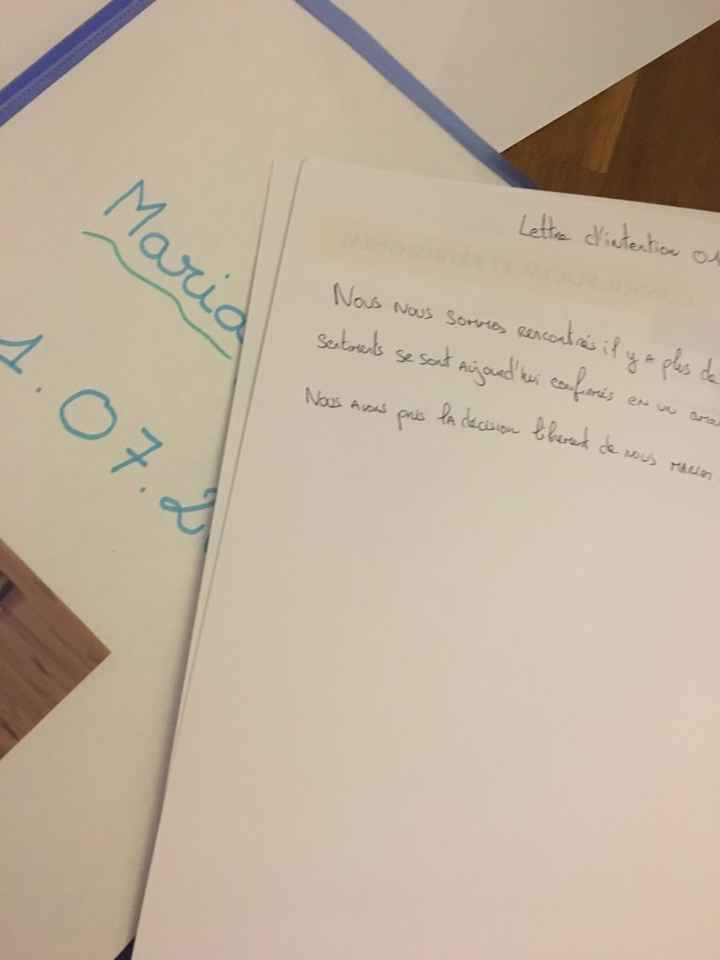 Maria
1.07.2
Lettre d'intention 01
Nous nous sommes rencontrés il y a plus de
sentiments se sont aujourd'hui confirmés en un
Nous avons pris la décision librement de nous marier